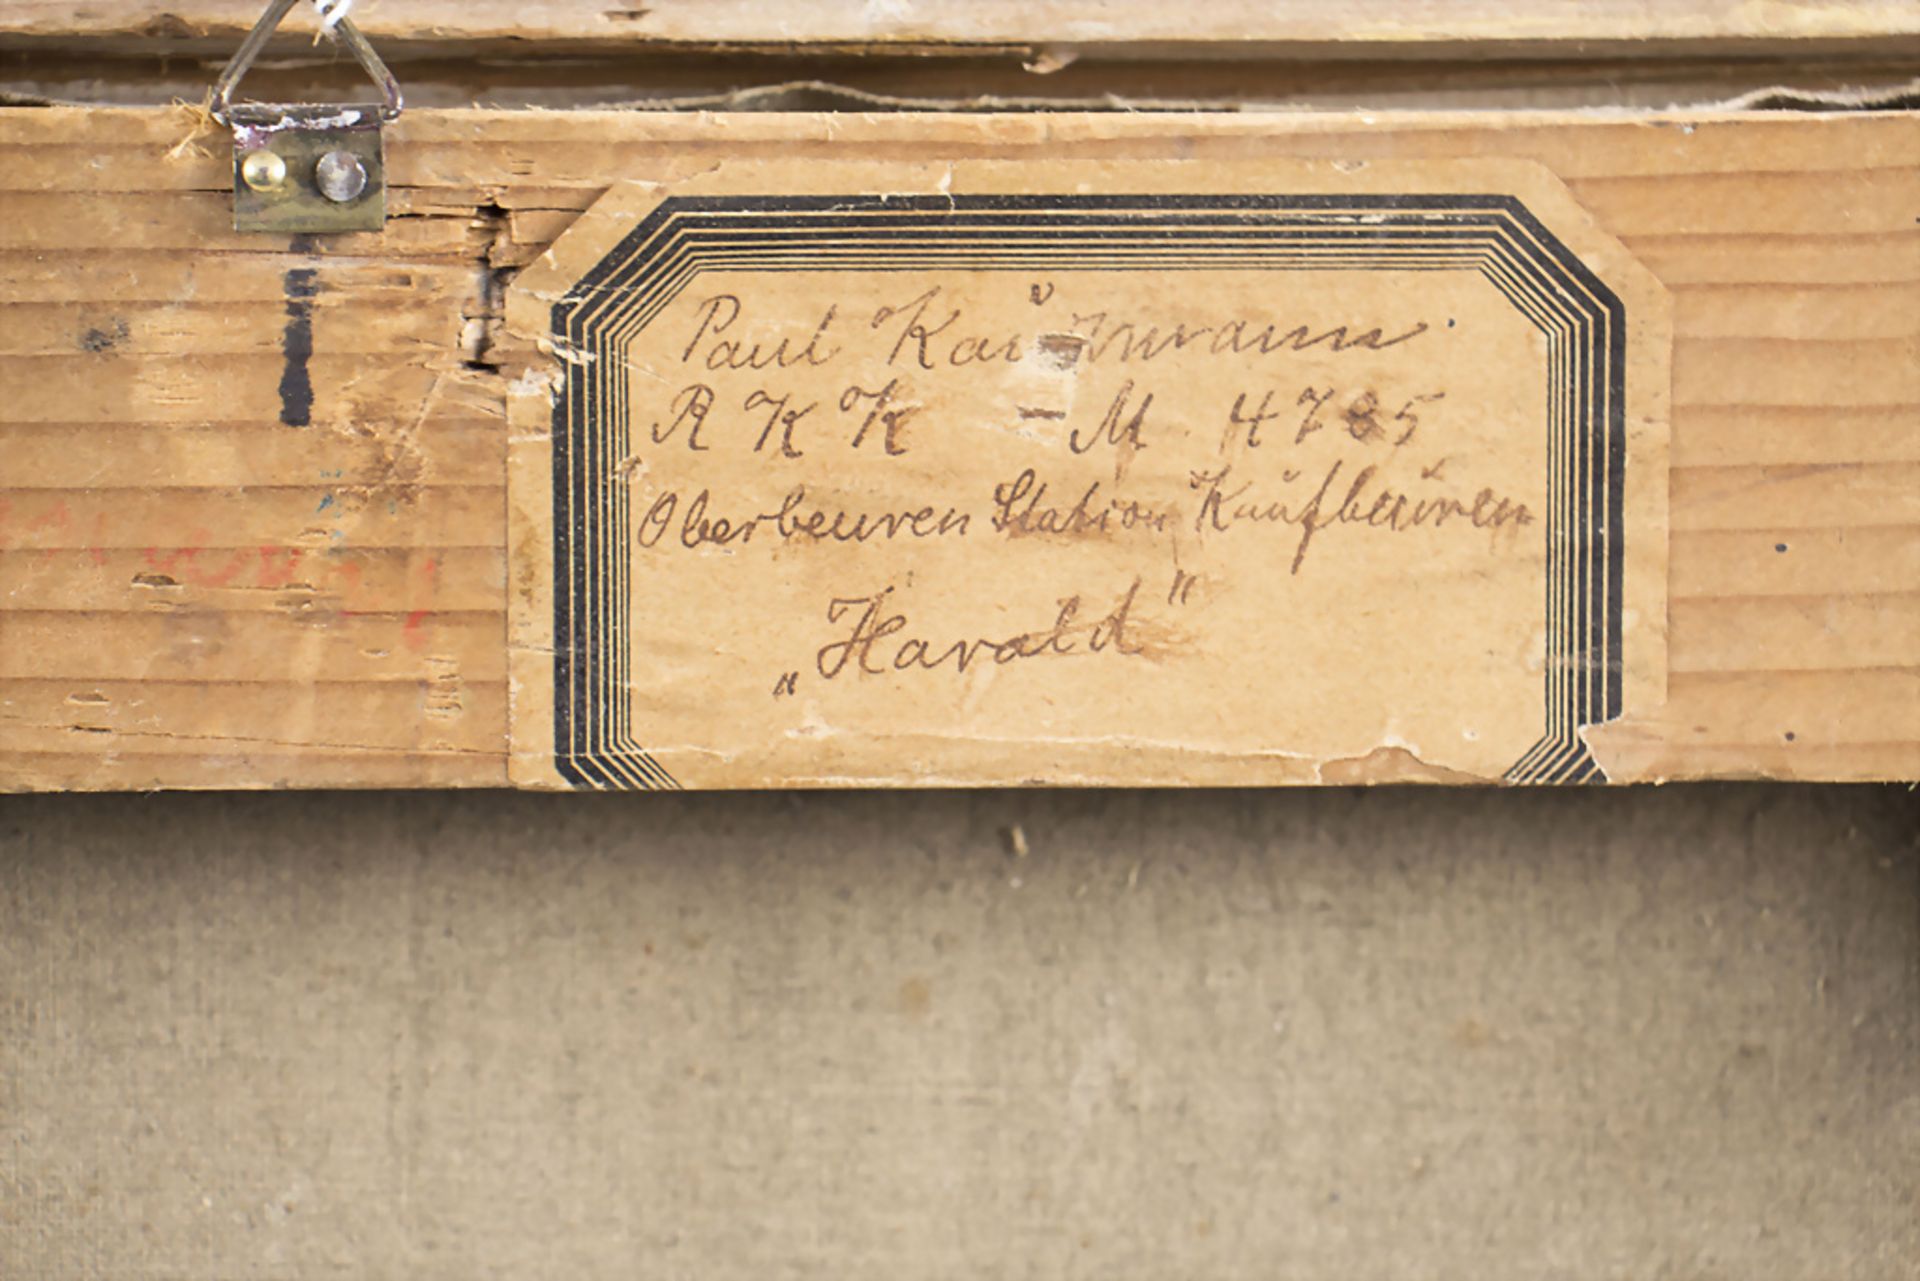 Paul
R K K - M. 4785
Oberbeuren Station Kaufbeuren
„Harald"